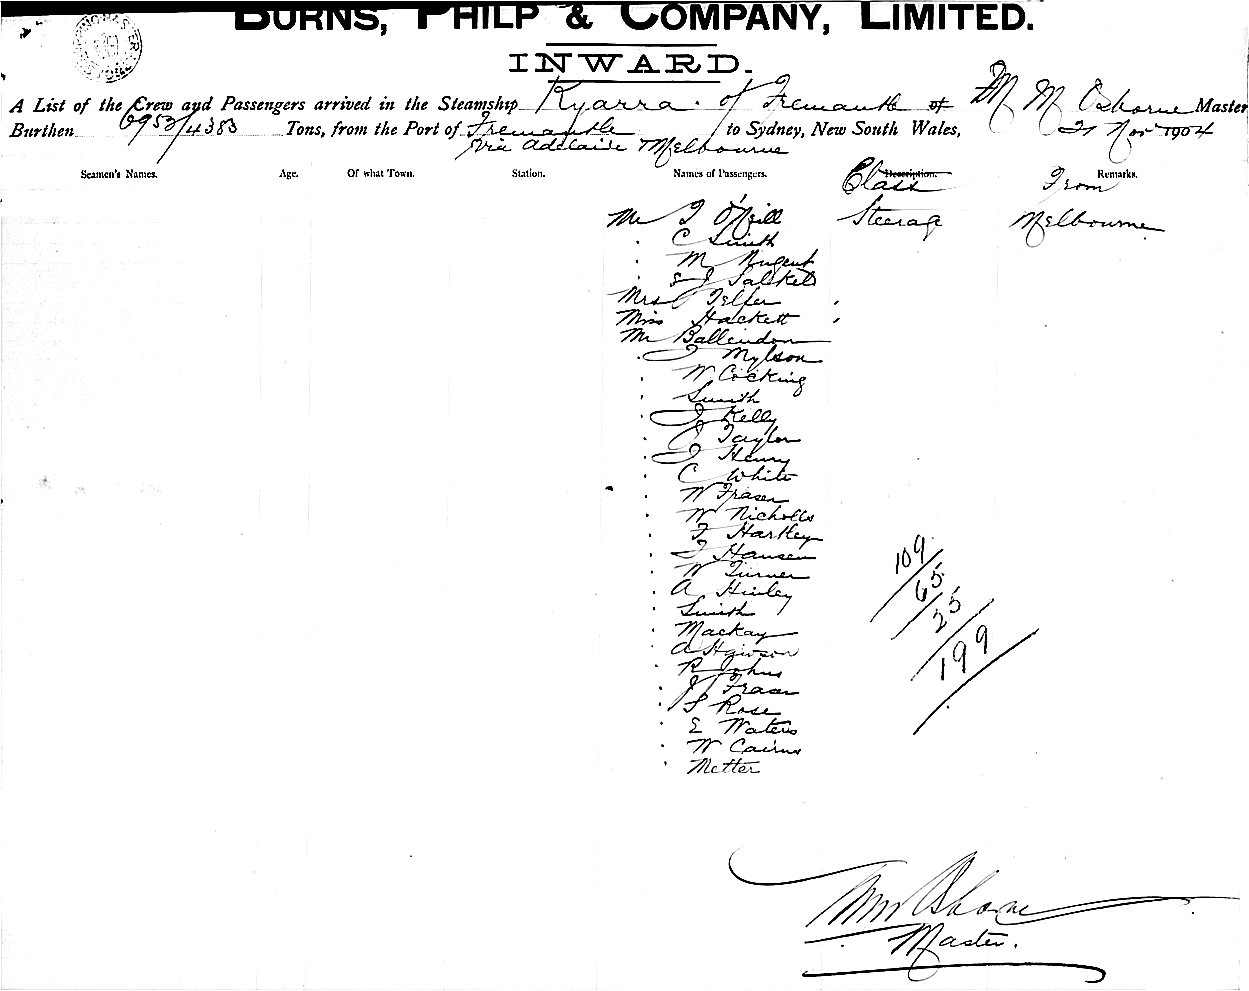 BURNS, PHILP & COMPANY, LIMITED.
INWARD.
A List of the Crew and Passengers arrived in the Steamship Kyarra. of Fremantle of M M Osborne Master
Burthen 6953/4383 Tons, from the Port of Fremantle to Sydney, New South Wales, 21 Nov 1904
via Adelaide Melbourne
Seamen's Names. Age. Of what Town. Station. Names of Passengers. Description. Class Remarks. From
Mr J O'Neill Steerage Melbourne
" C Smith
" M Nugent
" E J Salkeld
Mrs Telfer "
Miss Hackett "
Mr Ballendon
" J Mylson
" W Cocking
" Smith
" J Kelly
" J Taylor
" J Henry
" C White
" W Fraser
" W Nicholls
" F Hartley
" J Hansen
" W Turner
" A Hinley
" Smith
" Mackay
" A Hewson
" R Johns
" J Fraser
" S Rose
" E Waters
" W Cairns
" Metter
109
65
25
199
M M Osborne
Master.